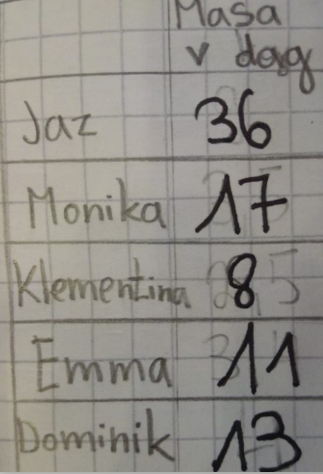 Masa
v dag
Jaz 36
Monika 17
Klementina 8
Emma 11
Dominik 13